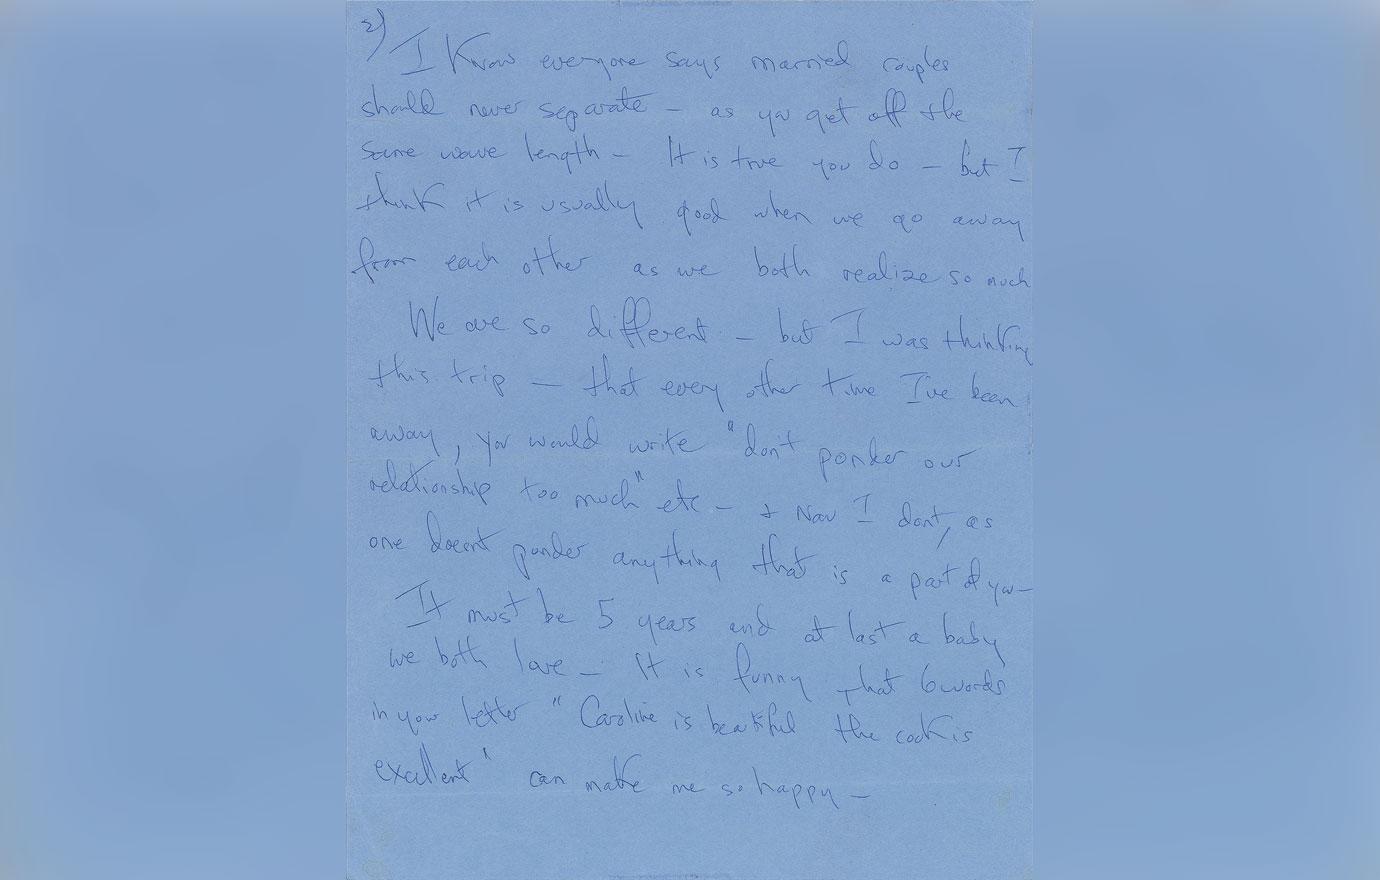 2)
I Know everyone says married couples
should never separate – as you get off the
same wave length – It is true you do – but I
think it is usually good when we go away
from each other as we both realize so much
We are so different – but I was thinking
this trip – that every other time I've been
away, you would write "don't ponder our
relationship too much" etc – + Now I dont, as
one doesnt ponder anything that is a part of you –
It must be 5 years and at last a baby
we both love – It is funny that 6 words
in your letter "Caroline is beautiful the cook is
excellent" can make me so happy –